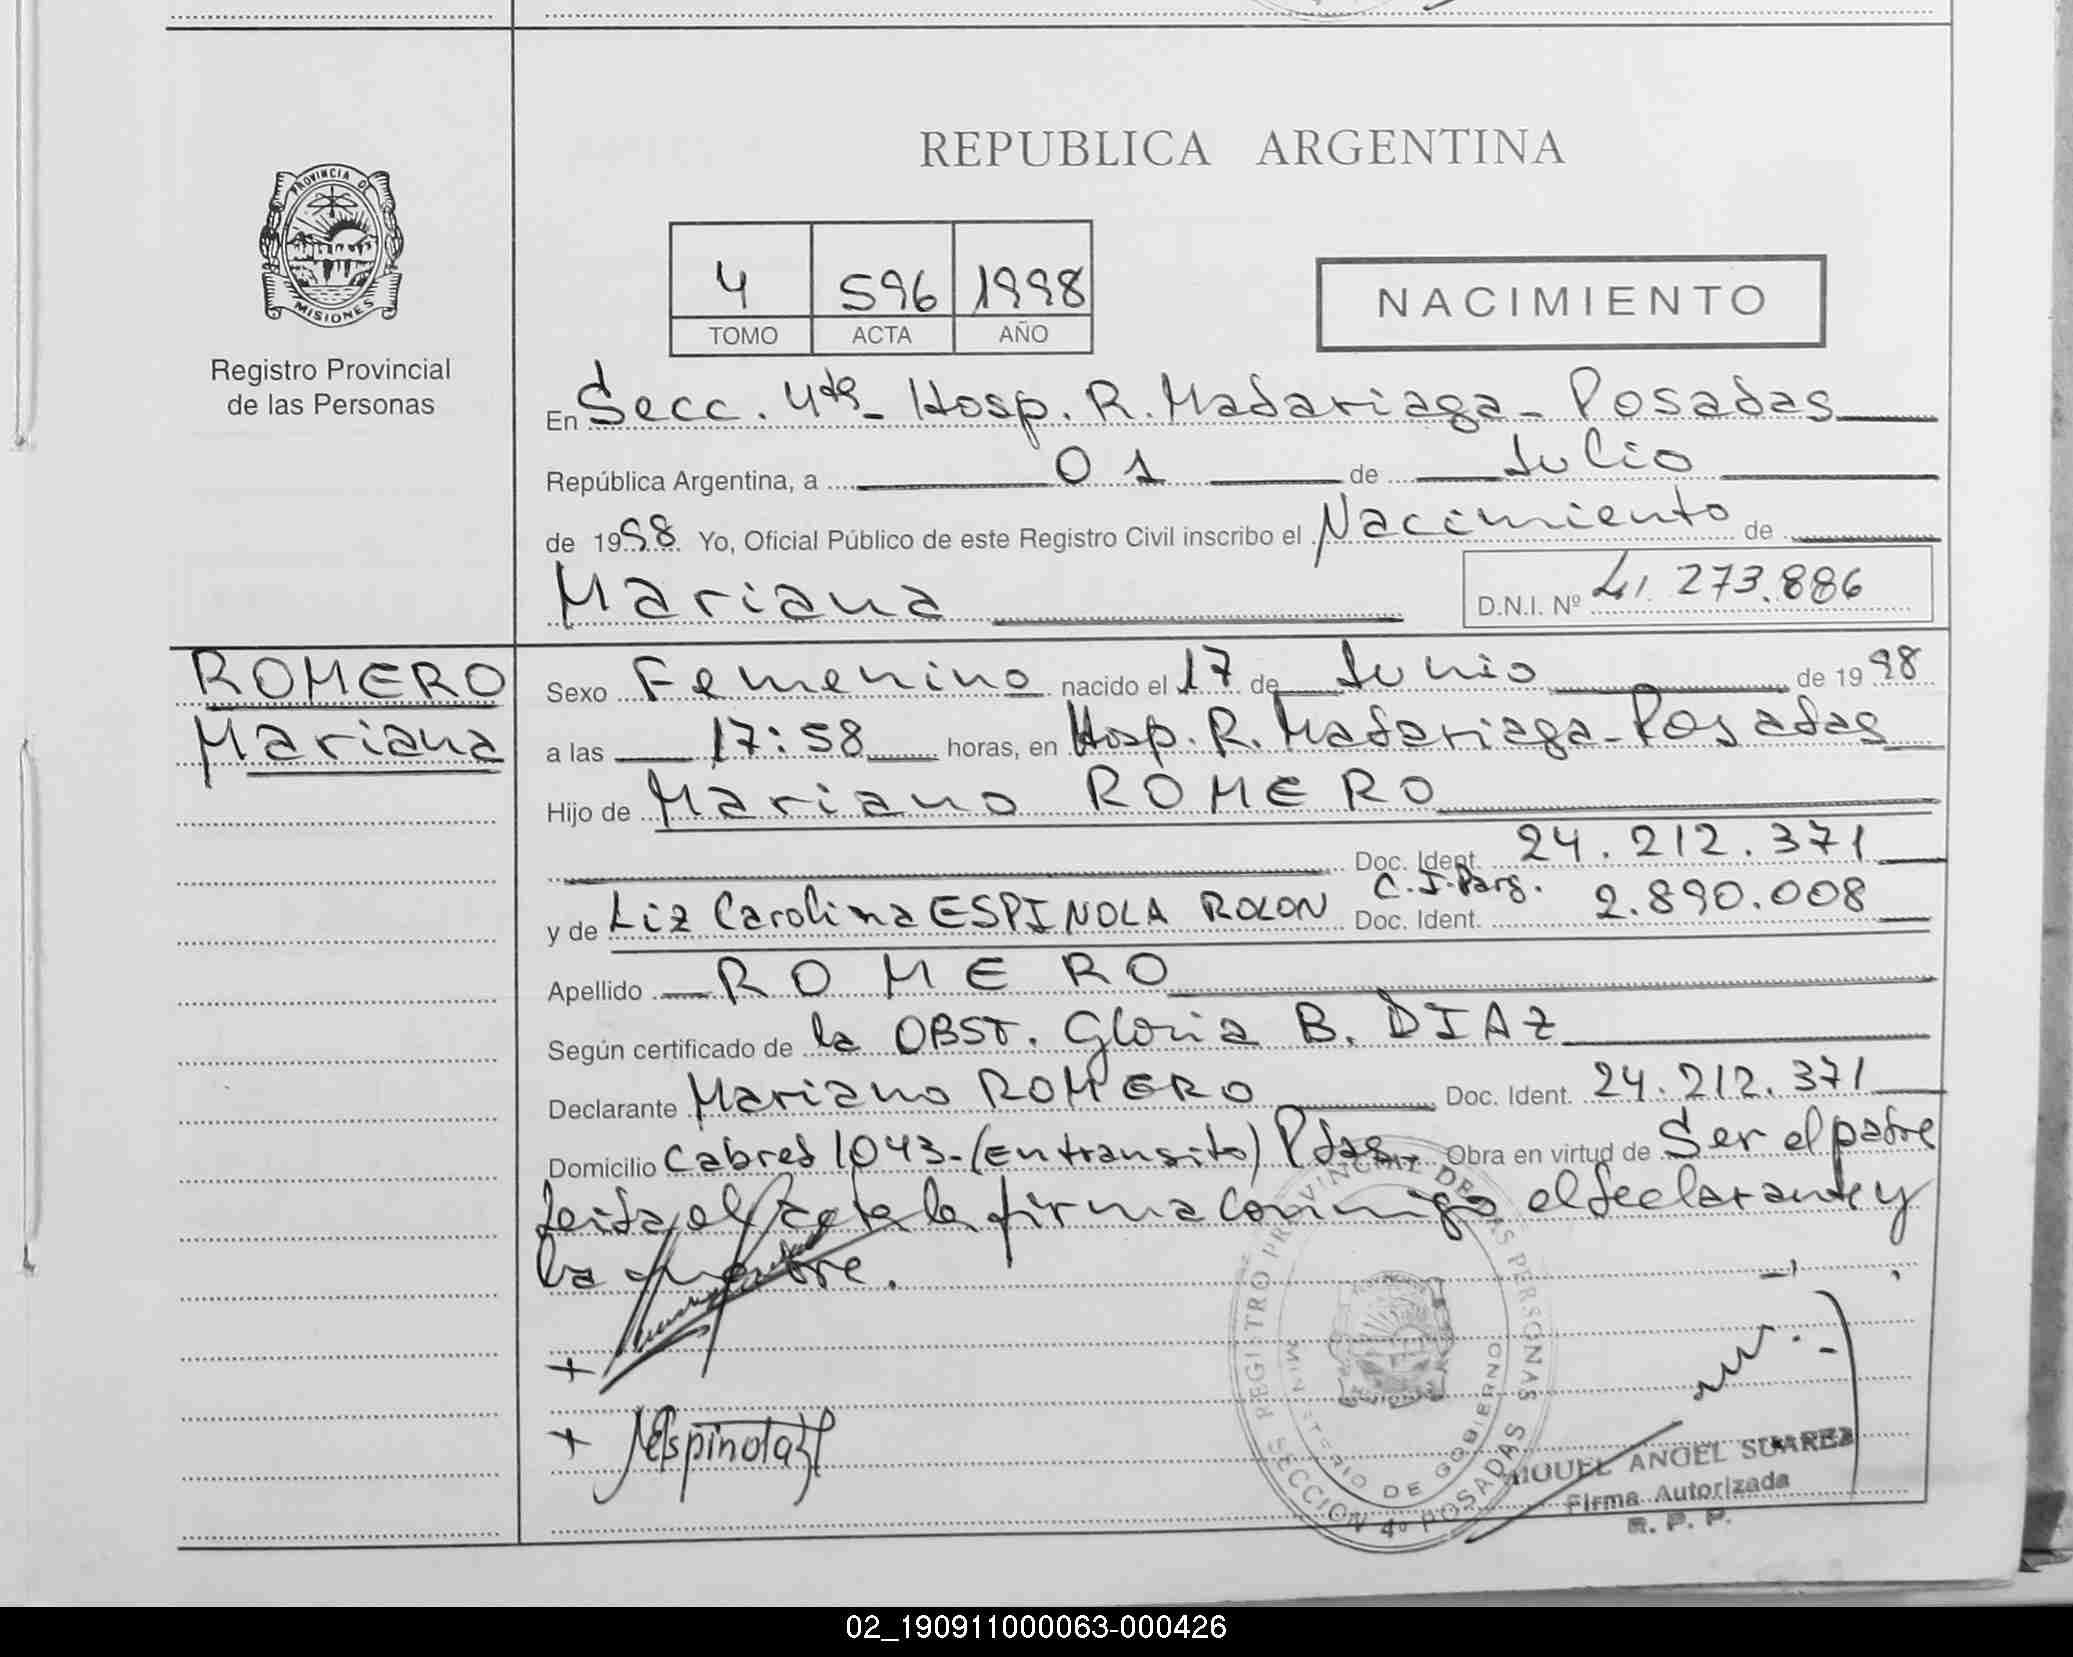 PROVINCIA D
MISIONES
Registro Provincial
de las Personas
REPUBLICA ARGENTINA
4 596 1998
TOMO ACTA AÑO
NACIMIENTO
En Secc. 4ta - Hosp. R. Madariaga - Posadas
República Argentina, a 01 de Julio
de 1998 Yo, Oficial Público de este Registro Civil inscribo el Nacimiento de
Mariana D.N.I. Nº 41.273.886
ROMERO
Mariana
Sexo Femenino nacido el 17 de Junio de 1998
a las 17:58 horas, en Hosp. R. Madariaga - Posadas
Hijo de Mariano ROMERO
Doc. Ident. 24.212.371
C.I. Parg.
y de Liz Carolina ESPINOLA ROLON Doc. Ident. 2.890.008
Apellido ROMERO
Según certificado de la OBST. Gloria B. DIAZ
Declarante Mariano ROMERO Doc. Ident. 24.212.371
Domicilio Cabred 1043 - (En transito) Pdas - Obra en virtud de Ser el padre
leida el acta la firma conmigo el declarante y
la madre.
+
+ Espinola
REGISTRO PROVINCIAL DE LAS PERSONAS
MINISTERIO DE GOBIERNO
SECCION 4º POSADAS
MIGUEL ANGEL SUAREZ
Firma Autorizada
R. P. P.
02_190911000063-000426